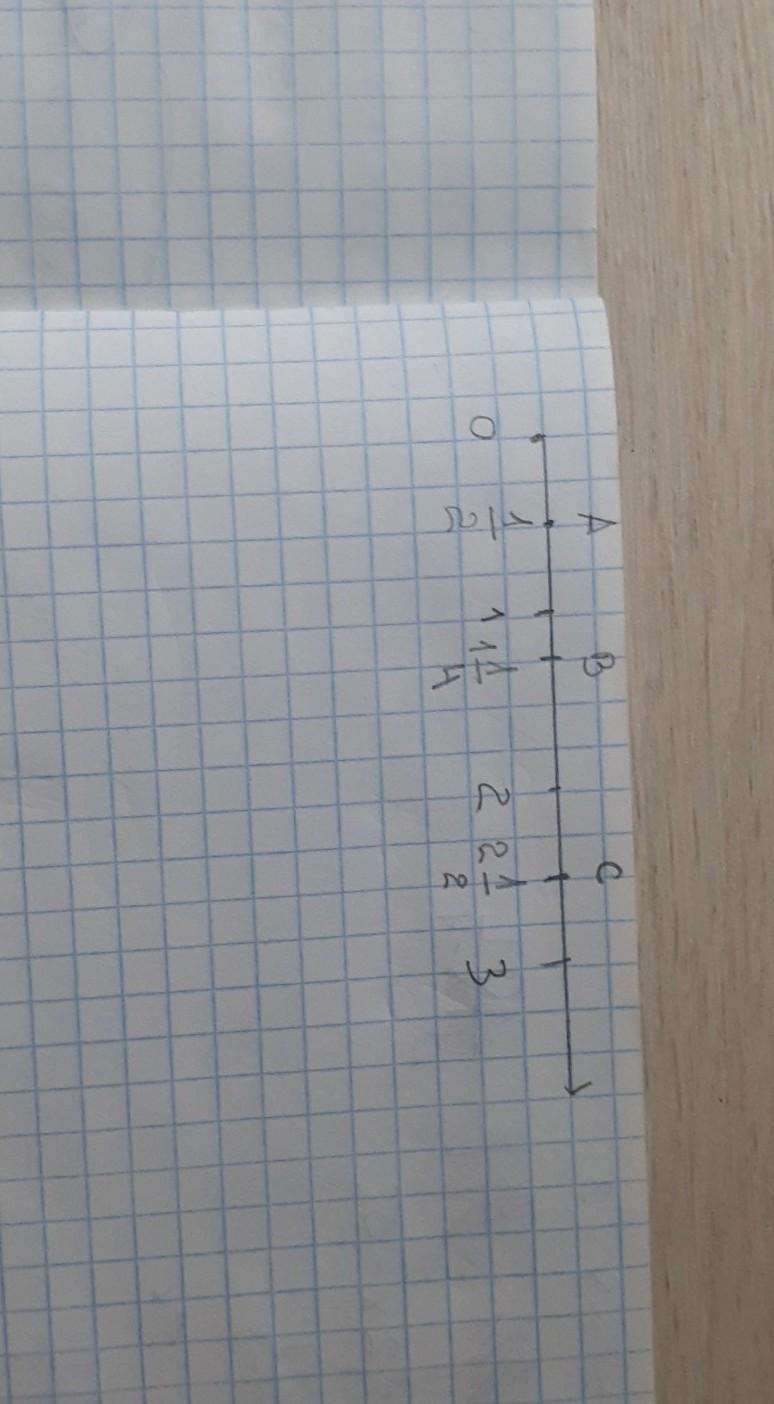 A B C
0 1/2 1 1 1/4 2 2 1/2 3